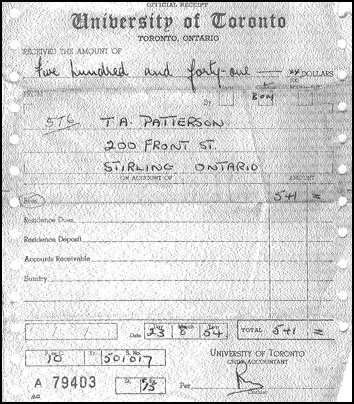 OFFICIAL RECEIPT
University of Toronto
TORONTO, ONTARIO
RECEIVED THE AMOUNT OF
Five hundred and forty-one — xx DOLLARS
By BOM
576 T.A. PATTERSON
200 FRONT ST.
STIRLING ONTARIO
ON ACCOUNT OF
Fees 541 =
Residence Dues
Residence Deposit
Accounts Receivable
Sundry
Date Day 23 Month 8 64 TOTAL 541 =
10 Yr. S. No. 501017
UNIVERSITY OF TORONTO
CHIEF ACCOUNTANT
A 79403
Per
Cashier